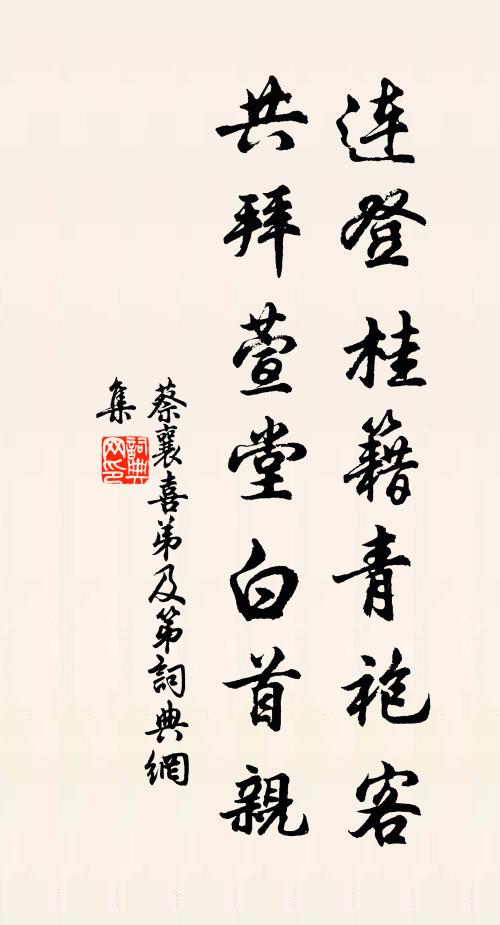 连登桂籍青袍客
共拜萱堂白首親
蔡襄喜弟及第詞典網
集
詞典
网印